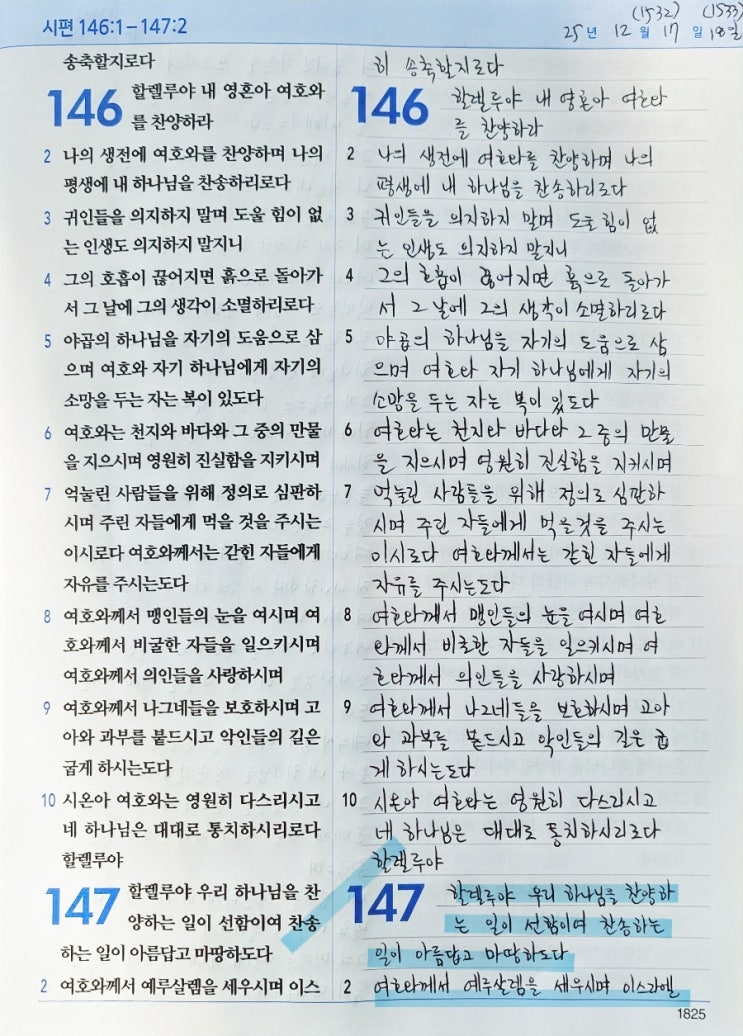 시편 146:1-147:2
(1532) (1533)
25년 12월 17일 18일
송축할지로다
146 할렐루야 내 영혼아 여호와
를 찬양하라
2 나의 생전에 여호와를 찬양하며 나의
평생에 내 하나님을 찬송하리로다
3 귀인들을 의지하지 말며 도울 힘이 없
는 인생도 의지하지 말지니
4 그의 호흡이 끊어지면 흙으로 돌아가
서 그 날에 그의 생각이 소멸하리로다
5 야곱의 하나님을 자기의 도움으로 삼
으며 여호와 자기 하나님에게 자기의
소망을 두는 자는 복이 있도다
6 여호와는 천지와 바다와 그 중의 만물
을 지으시며 영원히 진실함을 지키시며
7 억눌린 사람들을 위해 정의로 심판하
시며 주린 자들에게 먹을 것을 주시는
이시로다 여호와께서는 갇힌 자들에게
자유를 주시는도다
8 여호와께서 맹인들의 눈을 여시며 여
호와께서 비굴한 자들을 일으키시며
여호와께서 의인들을 사랑하시며
9 여호와께서 나그네들을 보호하시며 고
아와 과부를 붙드시고 악인들의 길은
굽게 하시는도다
10 시온아 여호와는 영원히 다스리시고
네 하나님은 대대로 통치하시리로다
할렐루야
147 할렐루야 우리 하나님을 찬
양하는 일이 선함이여 찬송
하는 일이 아름답고 마땅하도다
2 여호와께서 예루살렘을 세우시며 이스
히 송축할지로다
146 할렐루야 내 영혼아 여호와
를 찬양하라
2 나의 생전에 여호와를 찬양하며 나의
평생에 내 하나님을 찬송하리로다
3 귀인들을 의지하지 말며 도울 힘이 없
는 인생도 의지하지 말지니
4 그의 호흡이 끊어지면 흙으로 돌아가
서 그 날에 그의 생각이 소멸하리로다
5 야곱의 하나님을 자기의 도움으로 삼
으며 여호와 자기 하나님에게 자기의
소망을 두는 자는 복이 있도다
6 여호와는 천지와 바다와 그 중의 만물
을 지으시며 영원히 진실함을 지켜시며
7 억눌린 사람들을 위해 정의로 심판하
시며 주린 자들에게 먹을것을 주시는
이시로다 여호와께서는 갇힌 자들에게
자유를 주시는도다
8 여호와께서 맹인들의 눈을 여시며 여호
와께서 비굴한 자들을 일으키시며 여
호와께서 의인들을 사랑하시며
9 여호와께서 나그네들을 보호하시며 고아
와 과부를 붙드시고 악인들의 길은 굽
게 하시는도다
10 시온아 여호와는 영원히 다스리시고
네 하나님은 대대로 통치하시리로다
할렐루야
147 할렐루야 우리 하나님을 찬양하
는 일이 선함이여 찬송하는
일이 아름답고 마땅하도다
2 여호와께서 예루살렘을 세우시며 이스라엘
1825